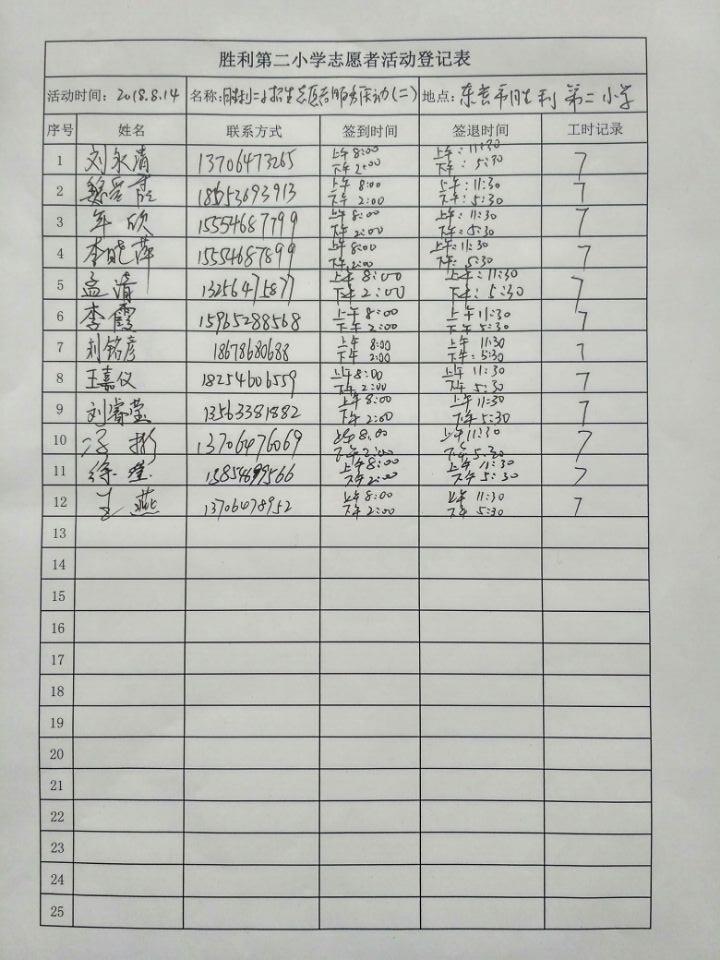 胜利第二小学志愿者活动登记表
活动时间：2018.8.14 名称：胜利二小招生志愿者服务活动(二) 地点：东营市胜利第二小学
序号 姓名 联系方式 签到时间 签退时间 工时记录
1 刘永清 13706473265 上午8:00 下午2:00 上午：11:30 下午：5:30 7
2 魏爱霞 18653693913 上午8:00 下午2:00 上午：11:30 下午：5:30 7
3 年欣 15554687799 上午8:00 下午2:00 上午：11:30 下午：5:30 7
4 李晓萍 15554687899 上午8:00 下午2:00 上午：11:30 下午：5:30 7
5 孟清 13256475877 上午8:00 下午2:00 上午：11:30 下午：5:30 7
6 李霞 15965288568 上午8:00 下午2:00 上午11:30 下午5:30 7
7 刘铭彦 18678680688 上午8:00 下午2:00 上午11:30 下午：5:30 7
8 王嘉仪 18254606559 上午8:00 下午2:00 上午11:30 下午5:30 7
9 刘睿莹 13563381882 上午8:00 下午2:00 上午11:30 下午5:30 7
10 冯彬 13706476069 上午8:00 下午2:00 上午11:30 下午5:30 7
11 徐莹 上午8:00 下午2:00 上午11:30 下午5:30 7
12 王燕 13706478952 上午8:00 下午2:00 上午11:30 下午5:30 7
13
14
15
16
17
18
19
20
21
22
23
24
25